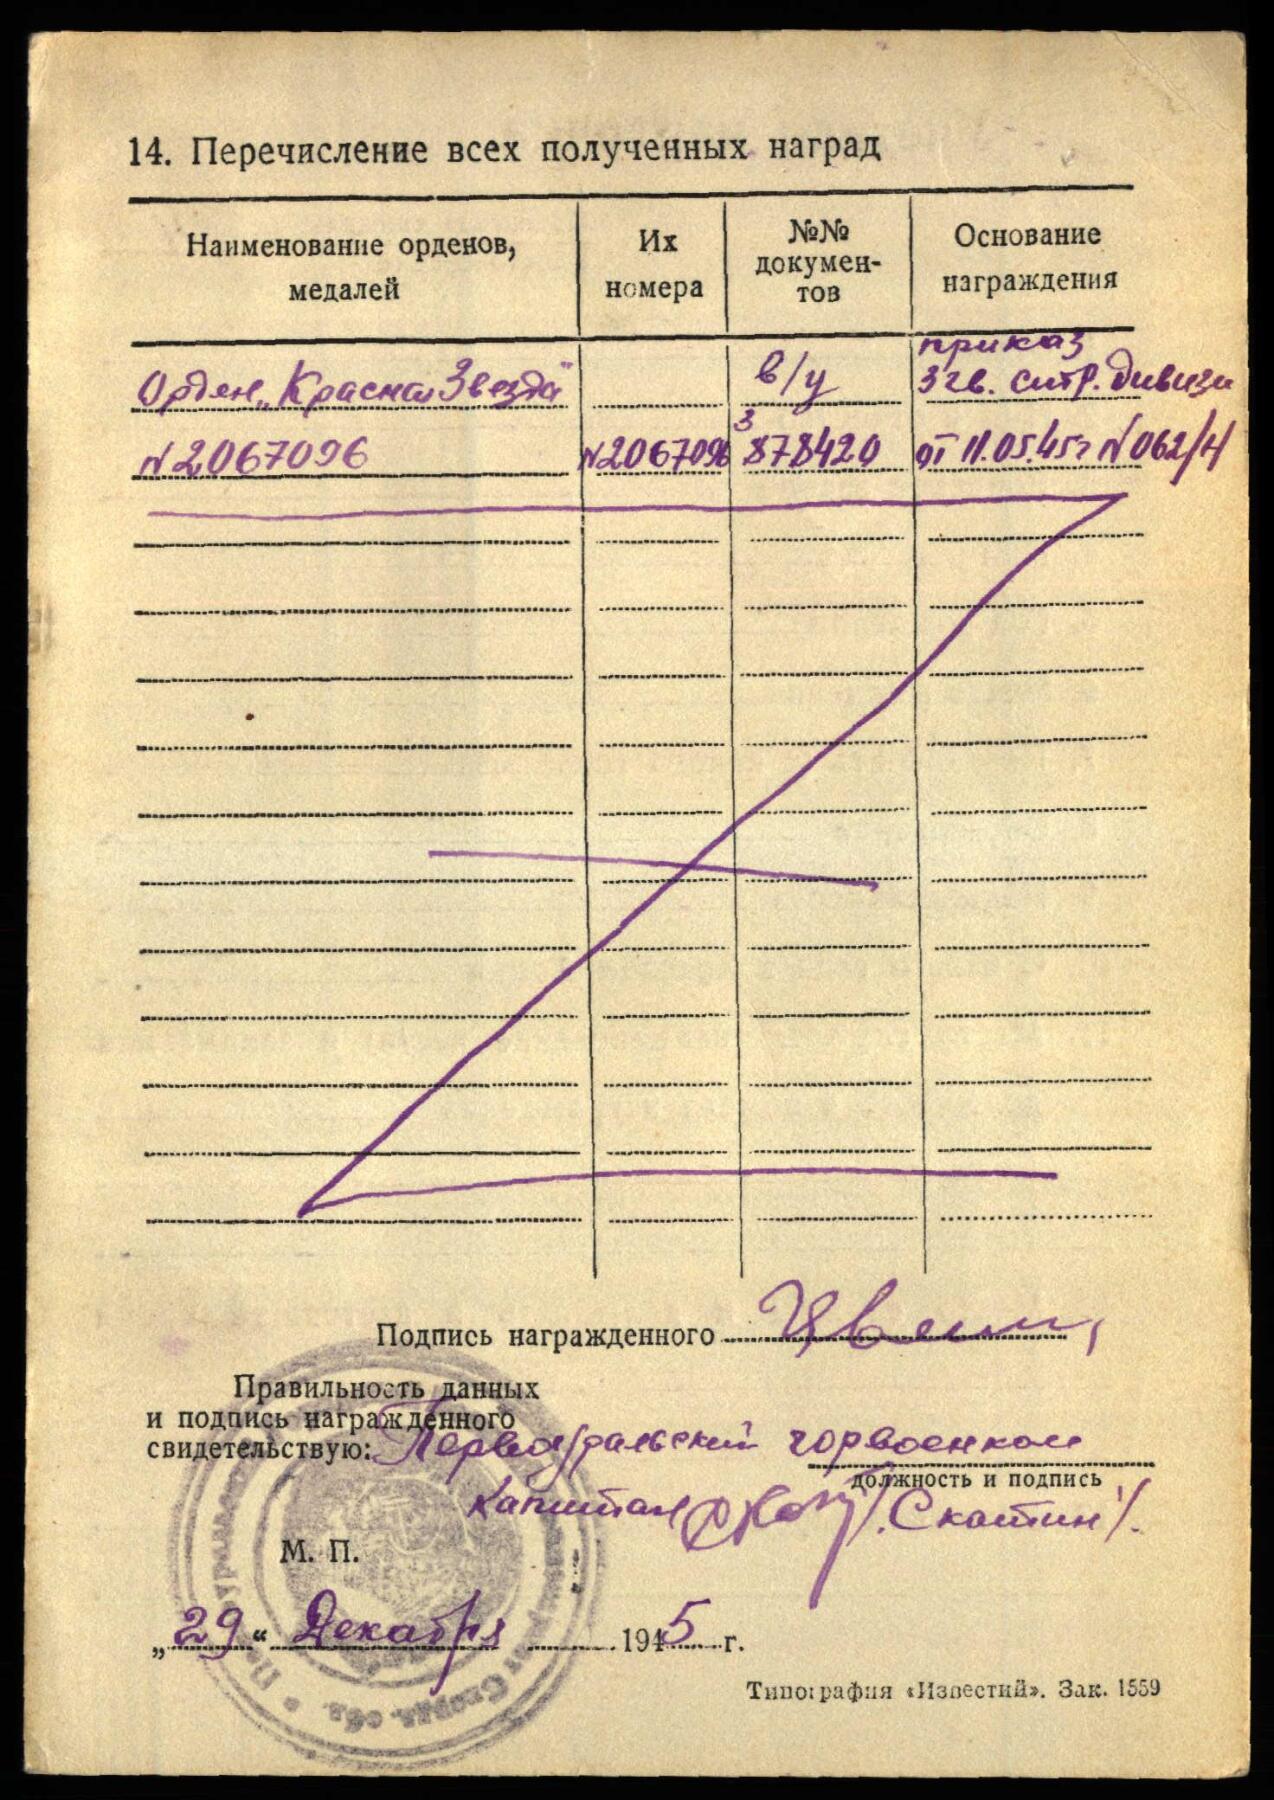 14. Перечисление всех полученных наград
Наименование орденов, медалей
Их номера
№№ докумен-
тов
Основание награждения
Орден „Красная Звезда"
N2067096
N2067096
в/у
з 878420
приказ
3 гв. стр. дивизи
от 11.05.45г N062/Н
Подпись награжденного
Правильность данных
и подпись награжденного
свидетельствую: Первоуральский горвоенком
должность и подпись
капитан /Скатин/.
М. П.
„29“ Декабря 1945 г.
Типография «Известий». Зак. 1559